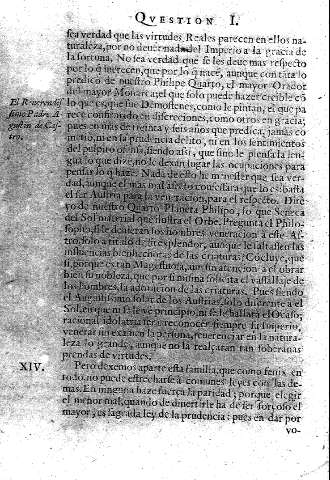 QVESTION I.
sea verdad que las virtudes Reales parecen en ellos na-
turaleza, por no deuer nada del Imperio a la gracia de
la fortuna. No sea verdad que se les deue mas respecto
por lo q̃ merecen, que por lo q̃ nacẽ, aunque con tãta lo
predicò de nuestro Philipe Quarto, el mayor Orador
del mayor Monarca; el que solo pudo hazer creible cõ
lo que es, que fue Demostenes, como le pintan, el que pa-
rece confirmado en discreciones, como otros en gracia;
pues en mas de treinta y seis años que predica, jamas co
metiò, ni en la prudencia delito, ni en los
pulpito
lengua lo que dize, no le dexan jugar las ocupaciones para
pensar lo q̃ haze. Nada de esto ha menester que sea ver-
dad, aunque el mas mal
el ser Austria para la veneracion, para el respecto. Dirè
yo de nuestro Quarto Planeta Philipo, lo que Seneca
del Sol material que ilustra el Orbe. Pregunta el Philo-
sopho, si le deuieran los hombres veneracion a este As-
tro, solo a titulo del resplendor, aunque le faltassen las
influencias bienhechoras de las criaturas? Cõcluye, que
sì, porque es tan Magestuosa, aun sin atencion a el obrar
bien su nobleza, que por sì misma solicita el vassallaje de
los hombres, la adoracion de las criaturas. Pues siendo
el Augustissimo solar de los Austrias, solo diferente a el
Sol, en que ni se le ve principio, ni se le hallarà el Ocaso;
racional idolatria serà reconocer siempre su Imperio,
venerar sin examen la persona, reuerenciar en la natura-
leza lo grande, aunque no la realçaran tan soberanas
prendas de virtudes.
Pero dexemos aparte esta familia, que como fenix en
todo, no puede estrecharse à comunes leyes con las de-
mas. En ninguna haze fuerça la paridad; porque elegir
el menor mal, quando de diuertirle ha de ser forçoso el
mayor, es sagrada ley de la prudencia: pues en dar por
vo-
El Reuerendis
simo Padre A-
gustin de Cas-
tro.
XIV.